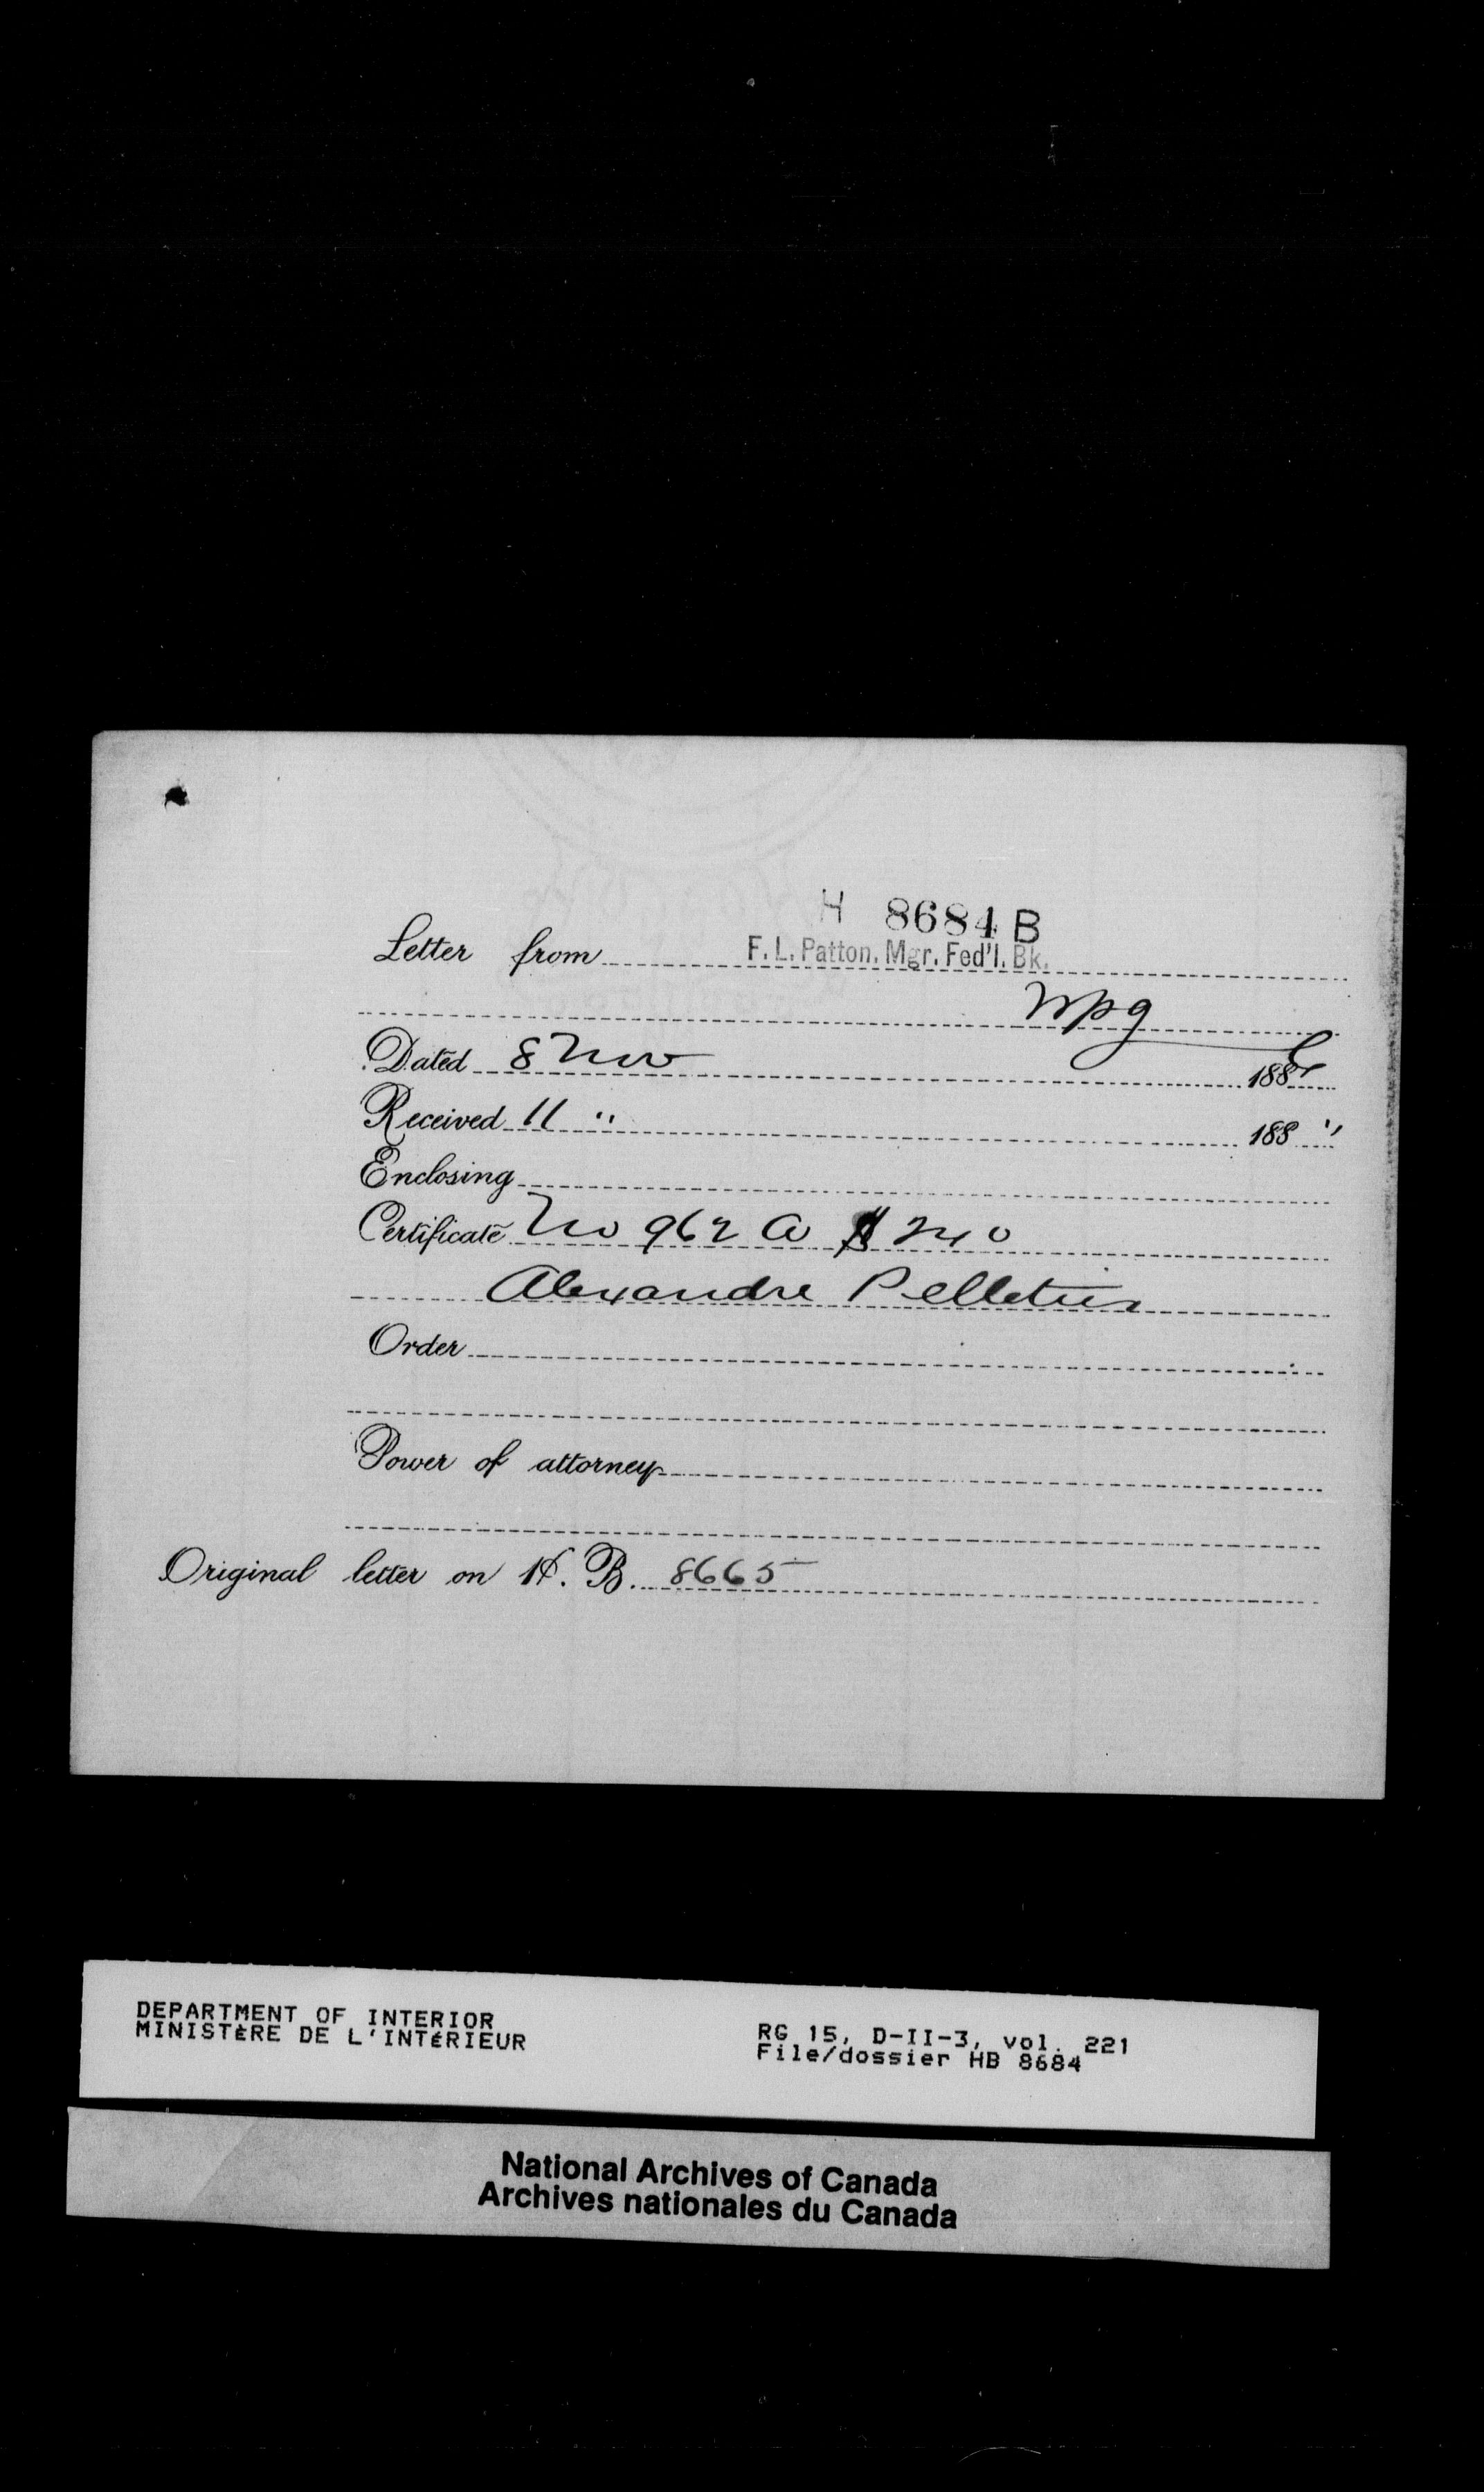 H 8684 B
Letter from F. L. Patton, Mgr. Fed'l. Bk.
Wpg
Dated 8 Nov 188
Received 11 " 188 "
Enclosing
Certificate No 962 A $240
Alexandre Pelletier
Order
Power of attorney
Original letter on H. B. 8665
DEPARTMENT OF INTERIOR
MINISTÈRE DE L'INTÉRIEUR
RG 15, D-II-3, vol. 221
File/dossier HB 8684
National Archives of Canada
Archives nationales du Canada